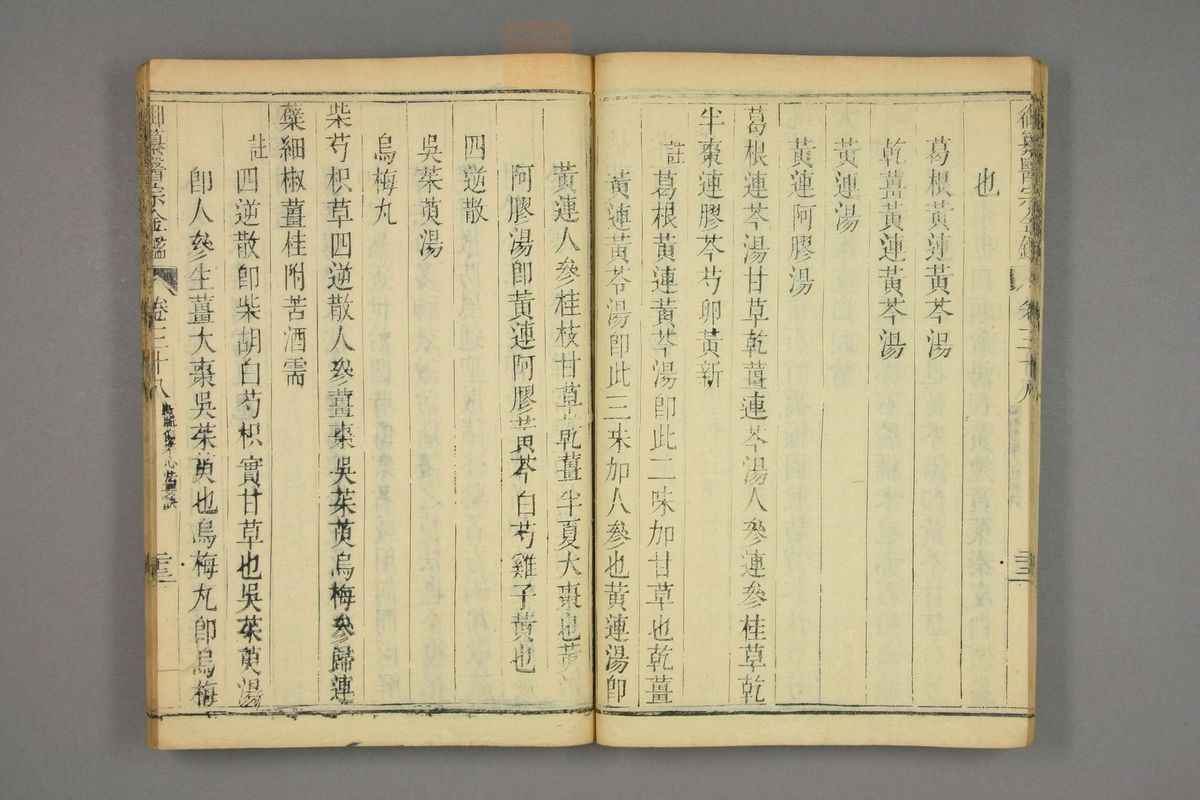 也
葛根黃連黃芩湯
乾薑黃連黃芩湯
黃連湯
黃連阿膠湯
葛根連芩湯甘草乾薑連芩湯人參連參桂草乾
半棗連膠芩芍卵黃新
註葛根黃連黃芩湯卽此二味加甘草也乾薑
黃連黃芩湯卽此三味加人參也黃連湯卽
黃連人參桂枝甘草乾薑半夏大棗也黃連
阿膠湯卽黃連阿膠黃芩白芍雞子黃也
四逆散
吳茱萸湯
烏梅丸
柴芍枳草四逆散人參薑棗吳茱萸烏梅參歸連
蘗細椒薑桂附苦酒需
註四逆散卽柴胡白芍枳實甘草也吳茱萸湯
卽人參生薑大棗吳茱萸也烏梅丸卽烏梅
御纂醫宗金鑑 卷三十八